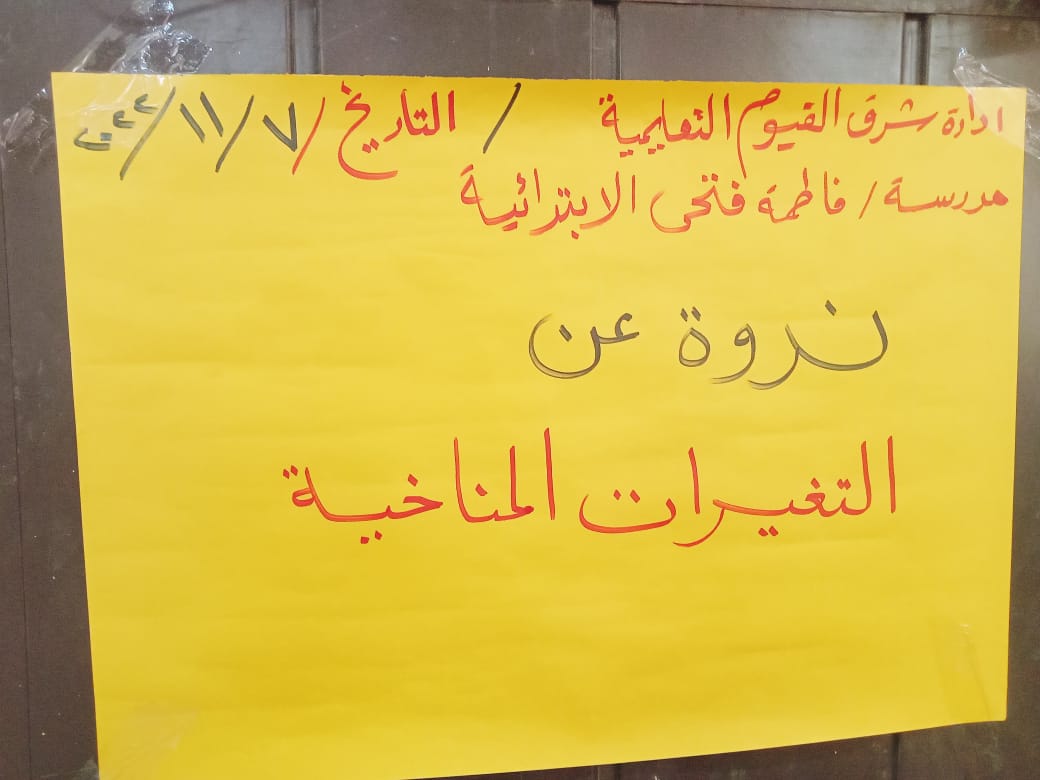 ادارة شرق الفيوم التعليمية / التاريخ / ٧ / ١١ / ٢٠٢٢
مدرسة / فاطمة فتحى الابتدائية
ندوة عن
التغيرات المناخية